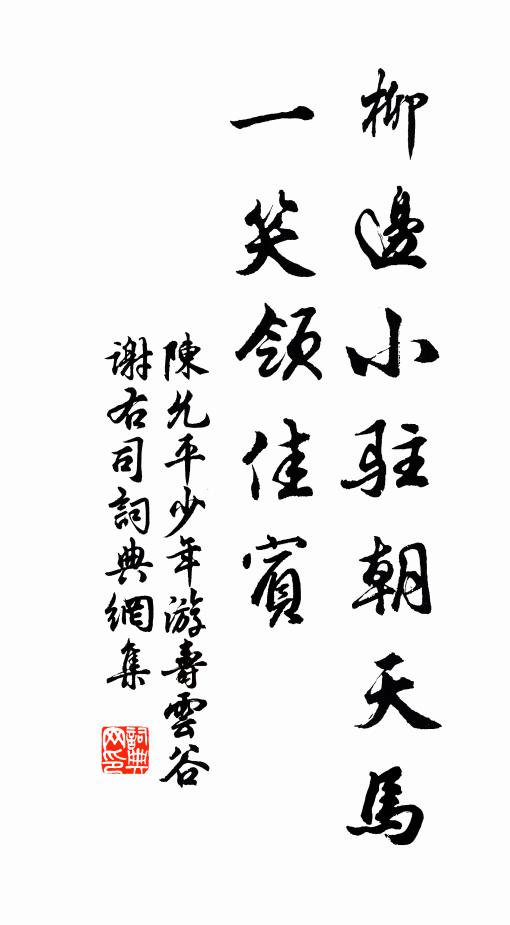 柳邊小駐朝天馬
一笑領佳賓
陳允平少年游壽雲谷
謝右司詞典網集
詞典
网印